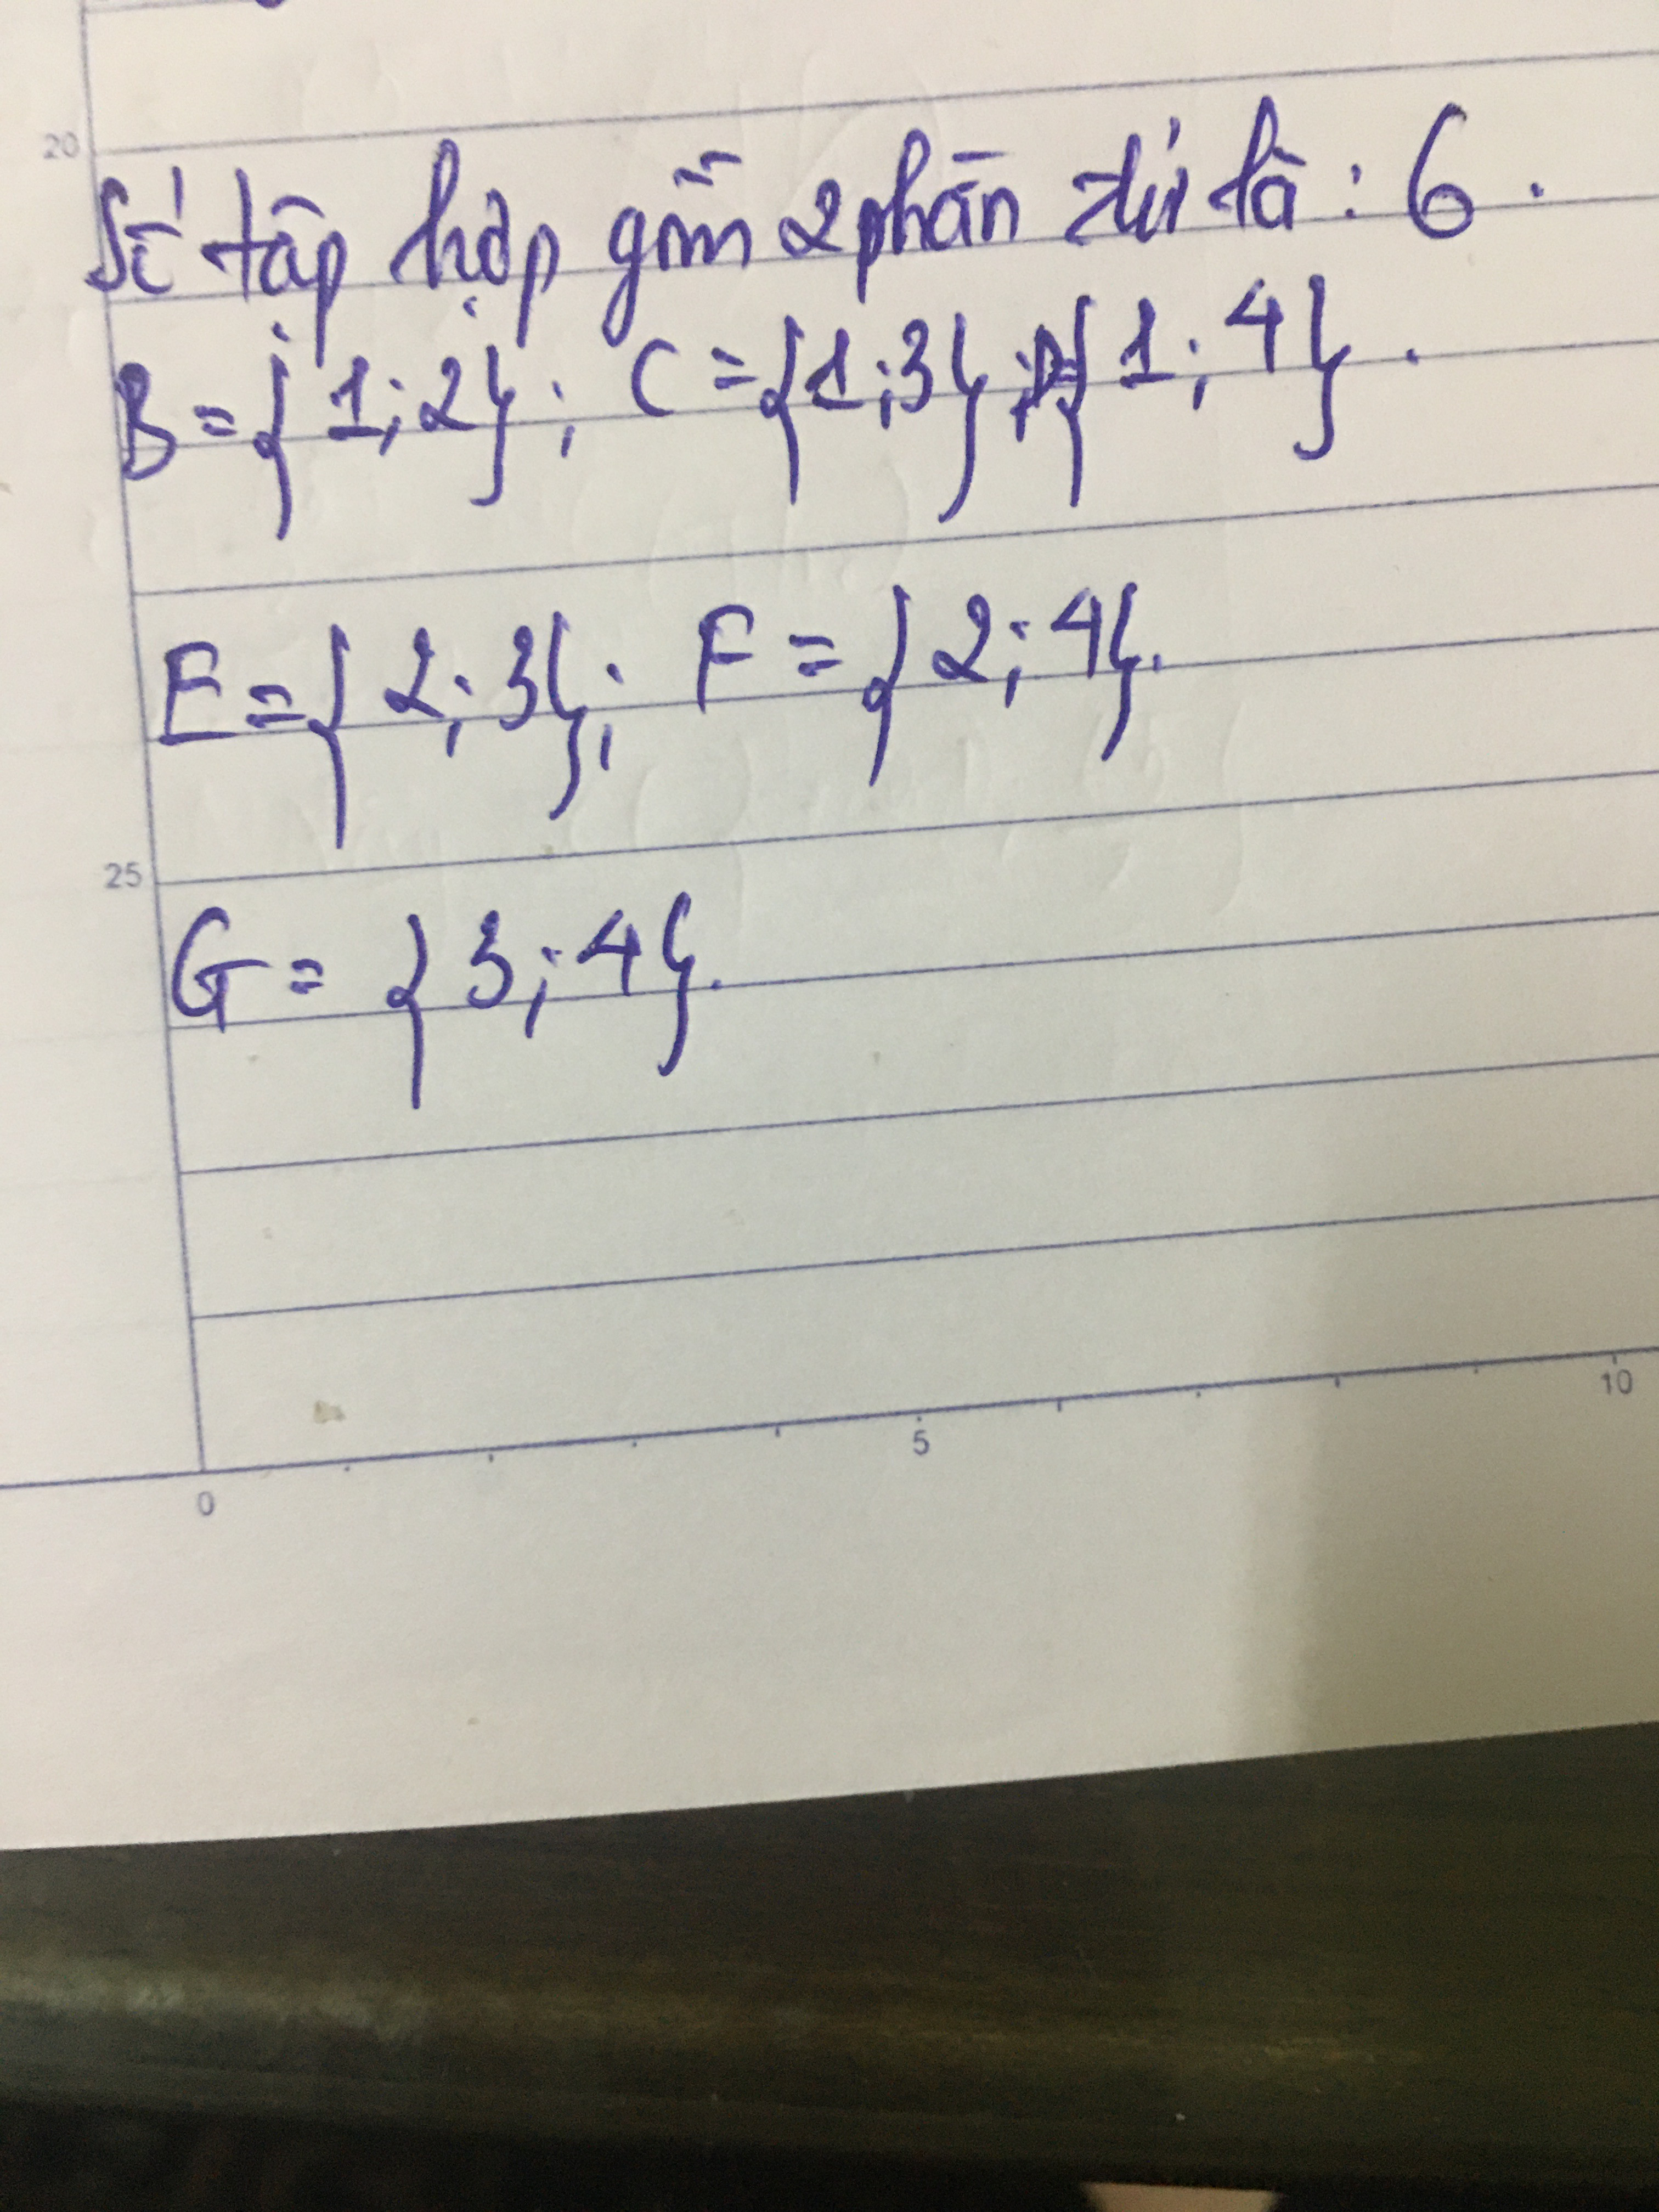 20
Số tập hợp gồm 2 phần tử là : 6 .
B = { 1; 2} ; C = {1 ;3} ; D={ 1; 4} .
E = { 2; 3}; F = { 2; 4}.
25
G = { 3; 4}.
0 5 10